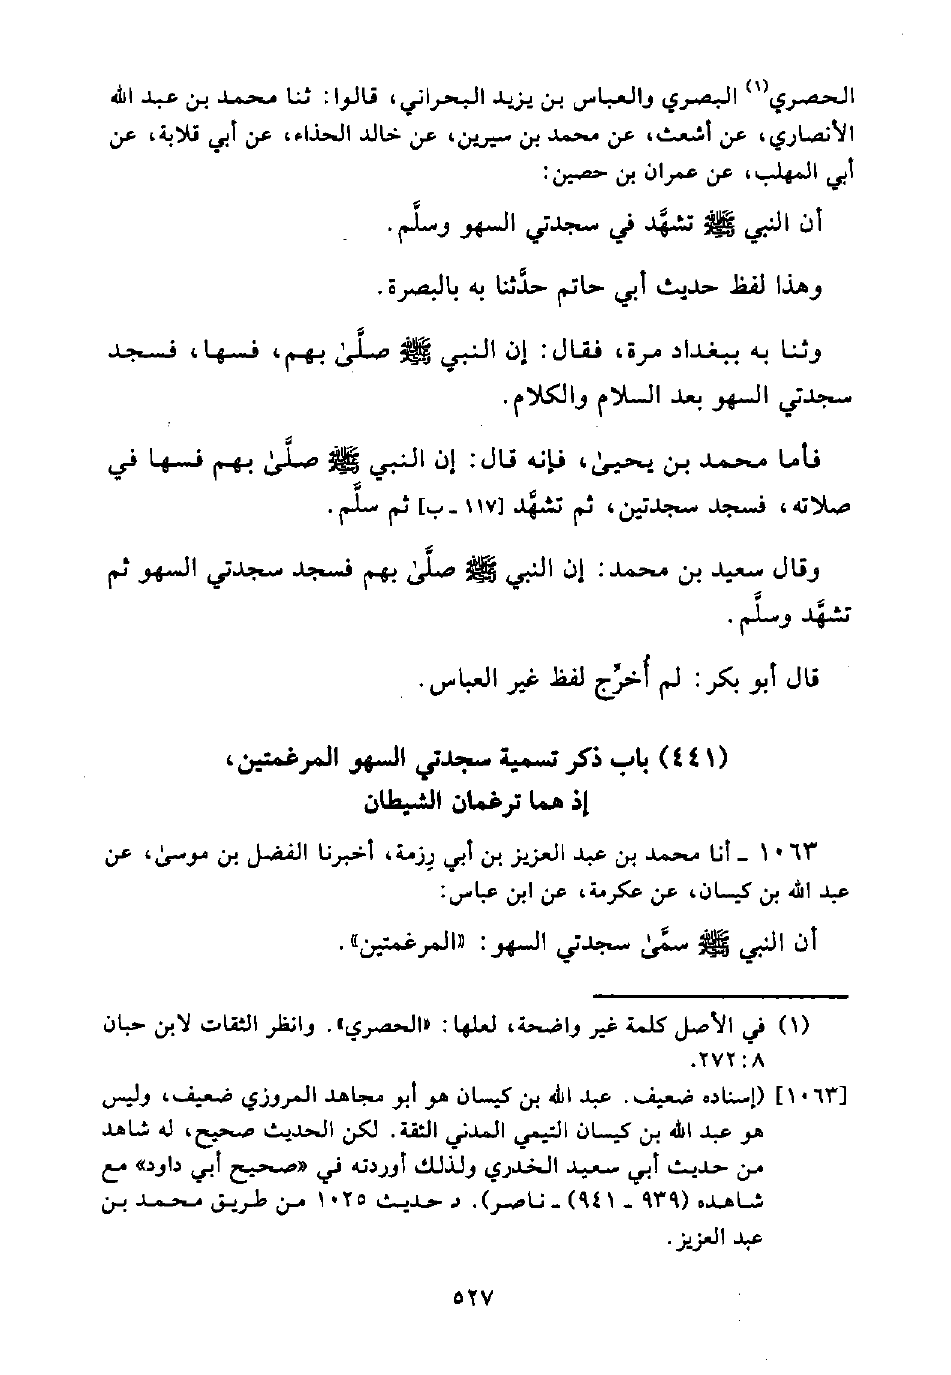 الحصري(١) البصري والعباس بن يزيد البحراني، قالوا: ثنا محمد بن عبد الله
الأنصاري، عن أشعث، عن محمد بن سيرين، عن خالد الحذاء، عن أبي قلابة، عن
أبي المهلب، عن عمران بن حصين:
أن النبي ﷺ تشهَّد في سجدتي السهو وسلَّم.
وهذا لفظ حديث أبي حاتم حدَّثنا به بالبصرة.
وثنا به ببغداد مرة، فقال: إن النبي ﷺ صلَّىٰ بهم، فسها، فسجد
سجدتي السهو بعد السلام والكلام.
فأما محمد بن يحيىٰ، فإنه قال: إن النبي ﷺ صلَّىٰ بهم فسها في
صلاته، فسجد سجدتين، ثم تشهَّد [١١٧ ـ ب] ثم سلَّم.
وقال سعيد بن محمد: إن النبي ﷺ صلَّىٰ بهم فسجد سجدتي السهو ثم
تشهَّد وسلَّم.
قال أبو بكر: لم أُخرِّج لفظ غير العباس.
(٤٤١) باب ذكر تسمية سجدتي السهو المرغمتين،
إذ هما ترغمان الشيطان
١٠٦٣ ـ أنا محمد بن عبد العزيز بن أبي رِزمة، أخبرنا الفضل بن موسىٰ، عن
عبد الله بن كيسان، عن عكرمة، عن ابن عباس:
أن النبي ﷺ سمَّىٰ سجدتي السهو: «المرغمتين».
(١) في الأصل كلمة غير واضحة، لعلها: «الحصري». وانظر الثقات لابن حبان
٨: ٢٧٢.
[١٠٦٣] (إسناده ضعيف. عبد الله بن كيسان هو أبو مجاهد المروزي ضعيف، وليس
هو عبد الله بن كيسان التيمي المدني الثقة. لكن الحديث صحيح، له شاهد
من حديث أبي سعيد الخدري ولذلك أوردته في «صحيح أبي داود» مع
شاهده (٩٣٩ ـ ٩٤١) ـ ناصر). د حديث ١٠٢٥ من طريق محمد بن
عبد العزيز.
٥٢٧